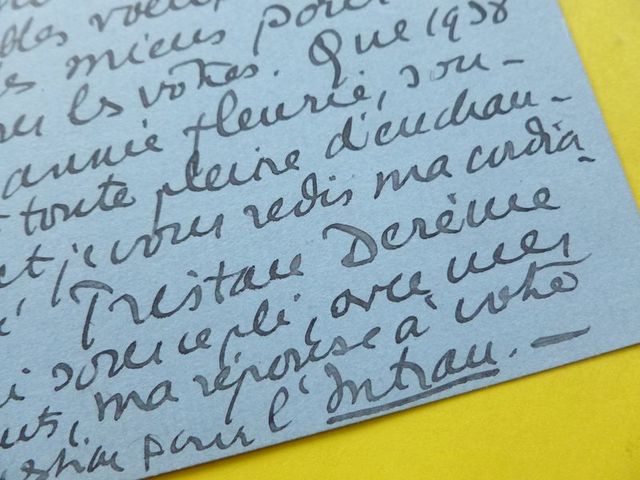 bles voeux
es mieux pour
ou les votres. Que 1938
année fleurie, sou-
t toute pleine d'enchan-
et je vous redis ma cordia-
é Tristan Derème
i sous ce pli, avec mes
uts, ma réponse à votre
estion pour l'Intran. —